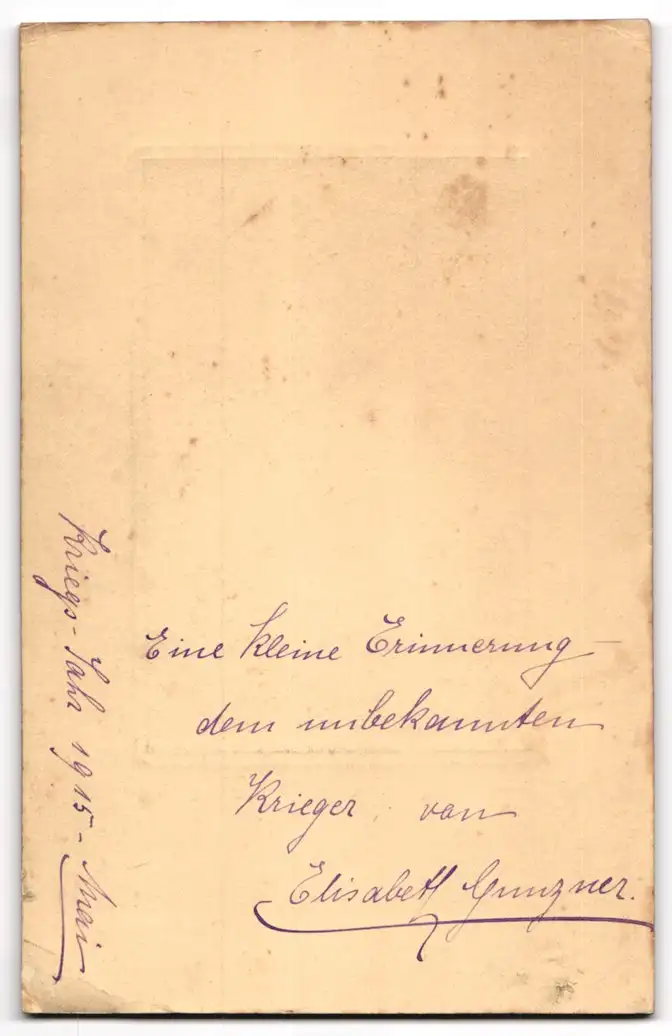 Eine kleine Erinnerung
dem unbekannten
Krieger, von
Elisabeth Gunzner.
Kriegs-Jahr 1915 - Mai